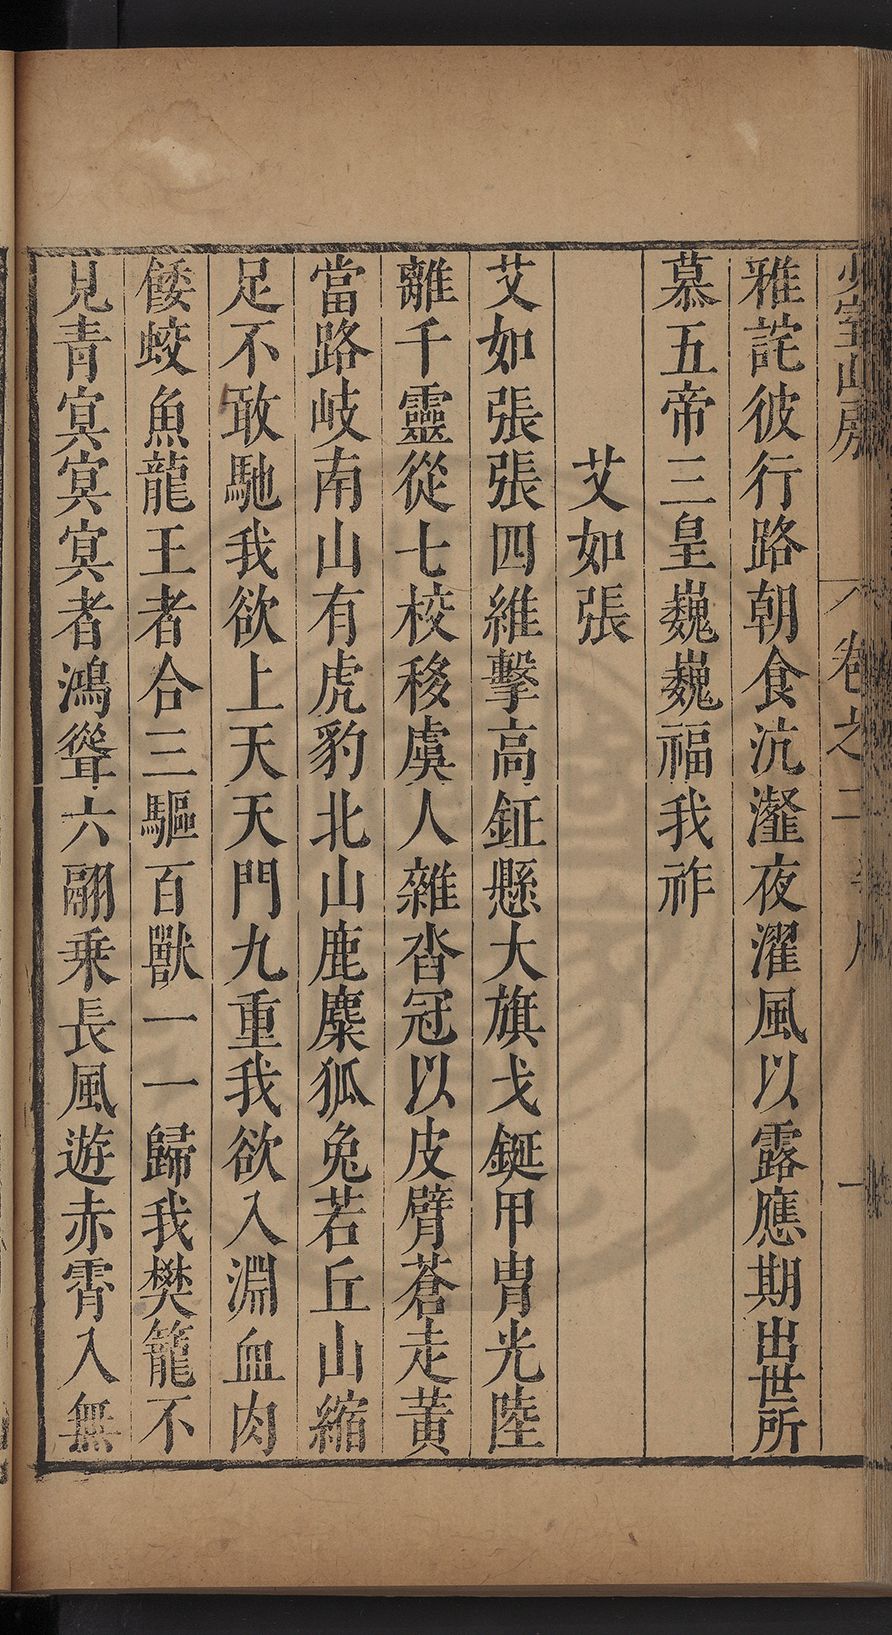 少室山房 卷之二 一
雅詫彼行路朝食沆瀣夜濯風以露應期出世所
慕五帝三皇巍巍福我祚
艾如張
艾如張張四維擊高鉦懸大旗戈鋋甲冑光陸
離千靈從七校移虞人雜沓冠以皮臂蒼走黃
當路岐南山有虎豹北山鹿麋狐兔若丘山縮
足不敢馳我欲上天天門九重我欲入淵血肉
餧蛟魚龍王者合三驅百獸一一歸我樊籠不
見青冥冥冥者鴻聳六翮乗長風遊赤霄入無